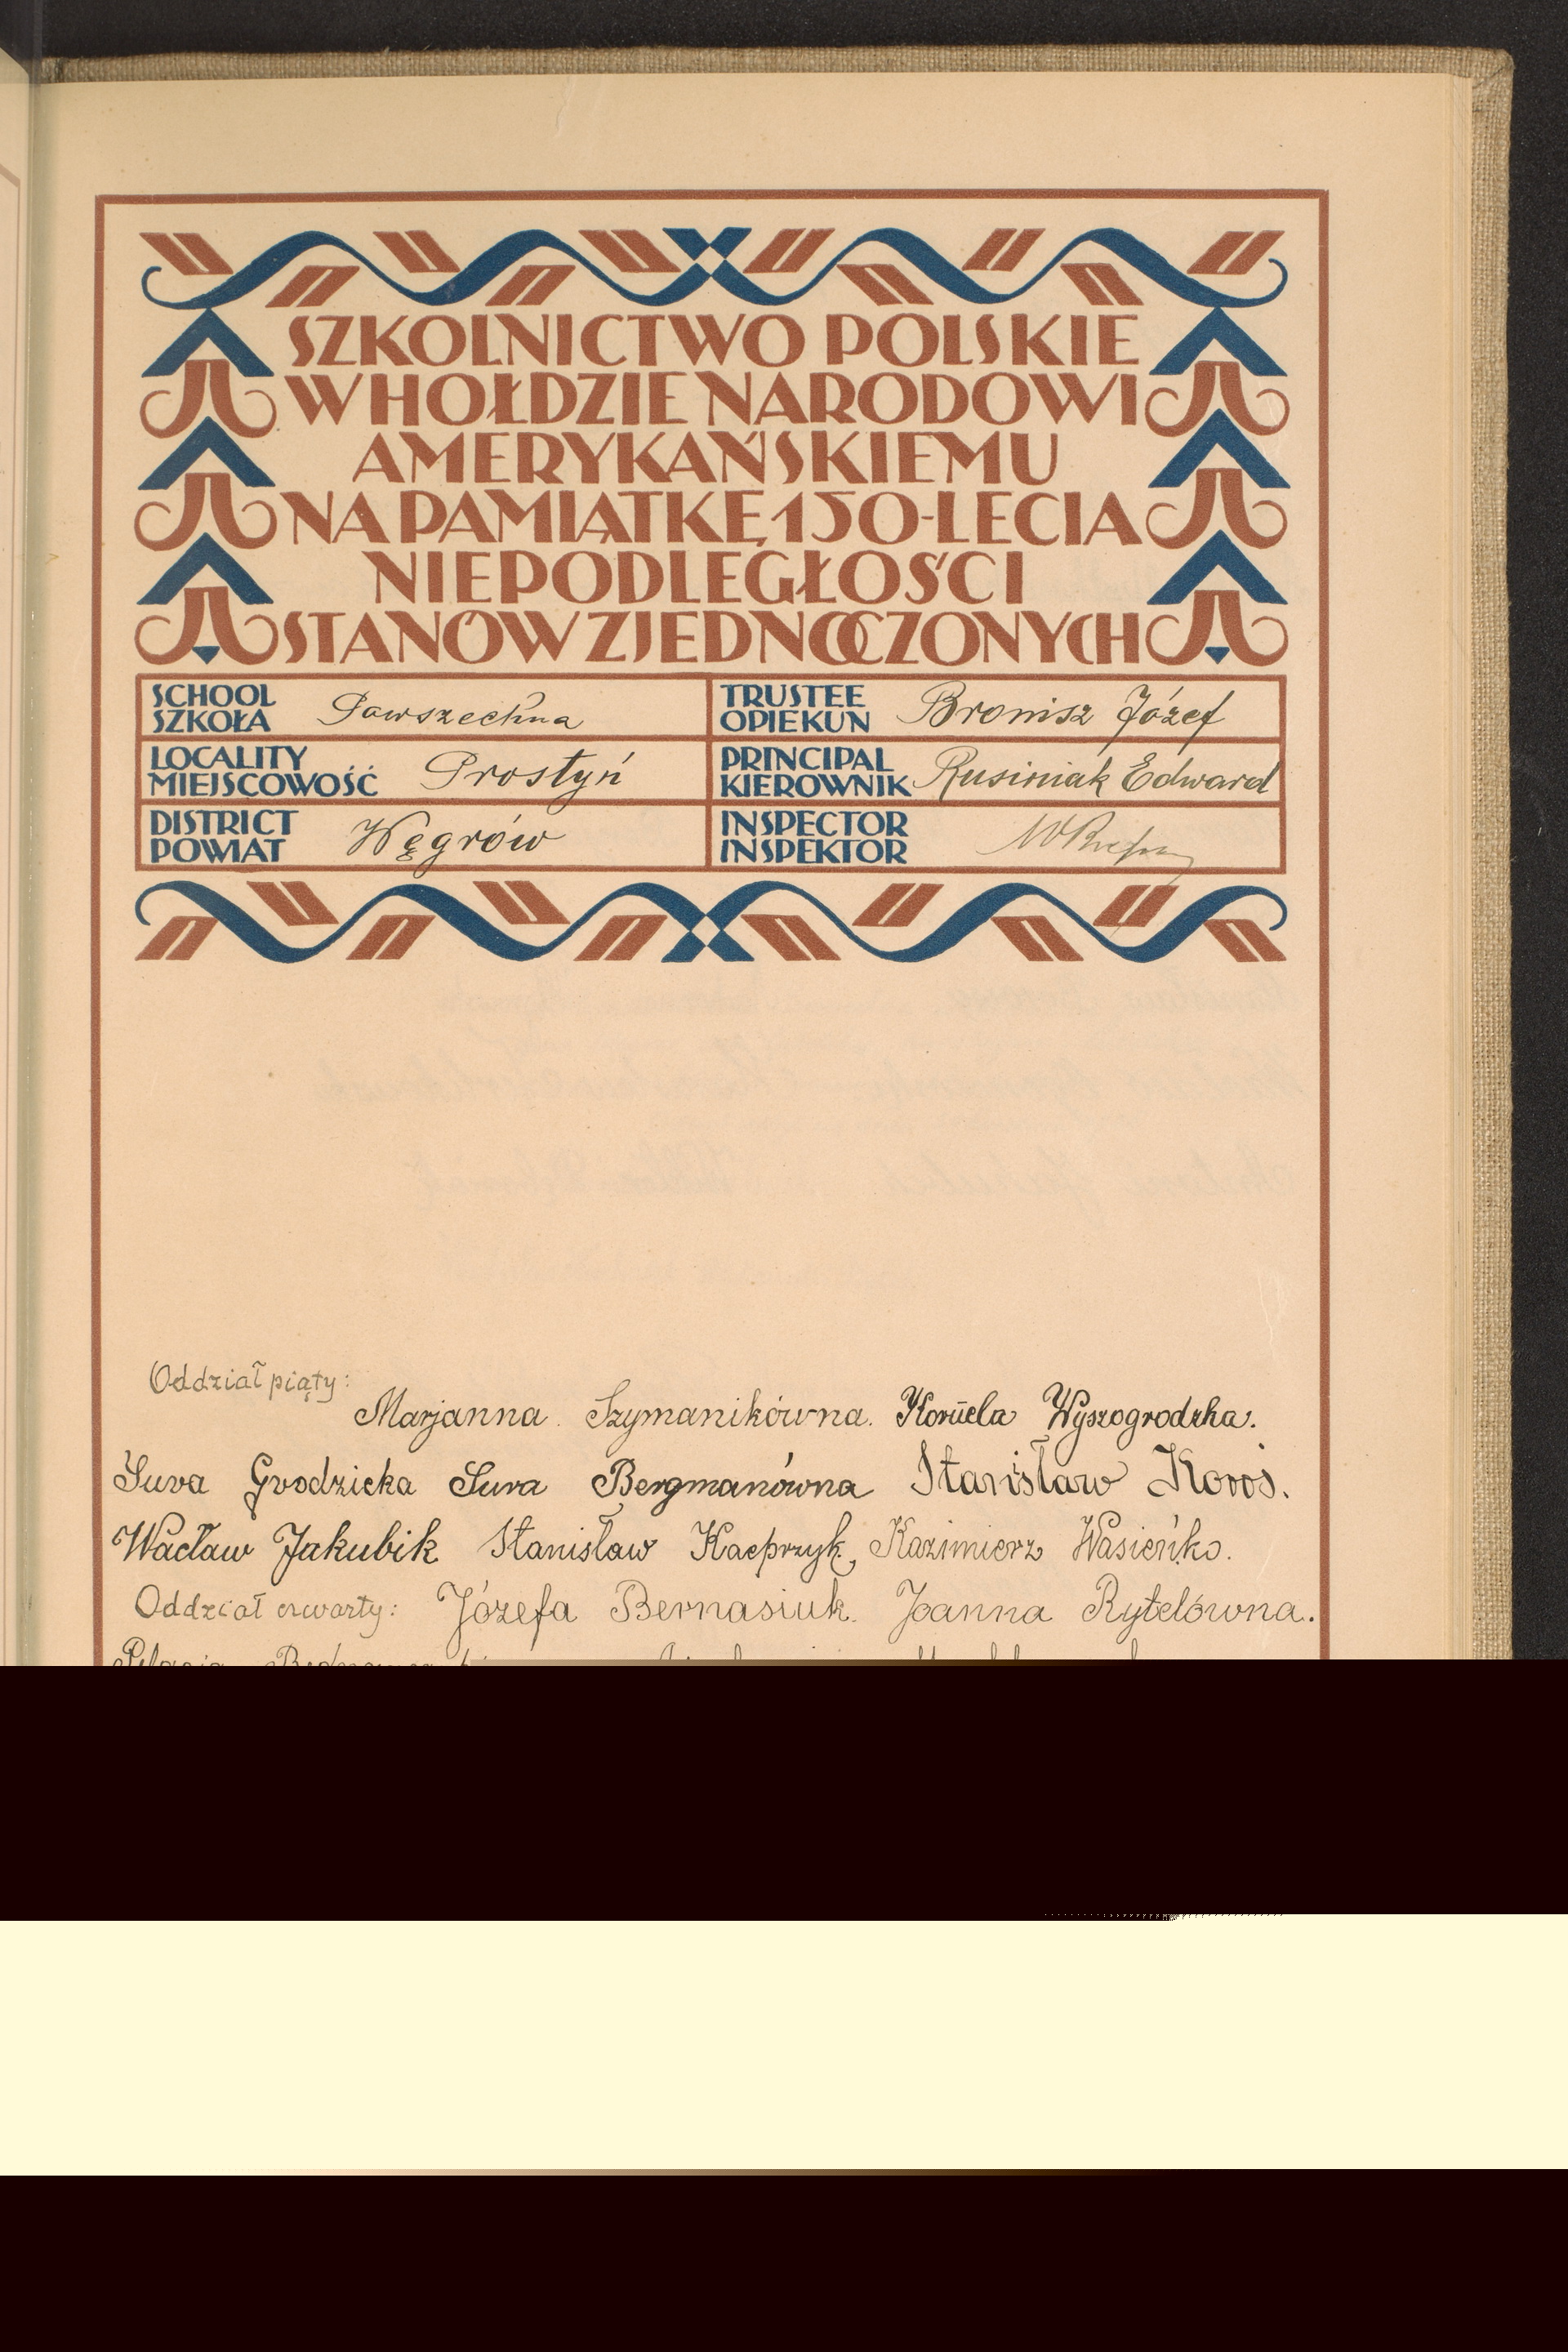 SZKOLNICTWO POLSKIE
W HOŁDZIE NARODOWI
AMERYKAŃSKIEMU
NA PAMIĄTKĘ 150-LECIA
NIEPODLEGŁOŚCI
STANÓW ZJEDNOCZONYCH
SCHOOL
SZKOŁA Powszechna
TRUSTEE
OPIEKUN Bronisz Józef
LOCALITY
MIEJSCOWOŚĆ Prostyń
PRINCIPAL
KIEROWNIK Rusiniak Edward
DISTRICT
POWIAT Węgrów
INSPECTOR
INSPEKTOR
Oddział piąty:
Marjanna Szymanikówna. Wyszogrodzka.
Sura Grodzicka Sura Bergmanówna Stanisław Koroś.
Wacław Jakubik Stanisław Kacprzyk, Kazimierz Wasieńko.
Oddział czwarty: Józefa Bernasiuk. Joanna Rytelówna.